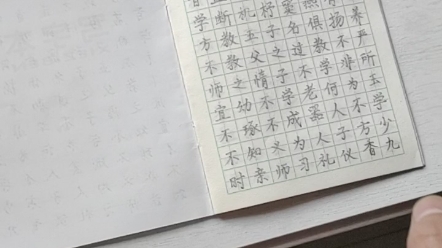 学断机杼窦燕
方教五子名俱扬养
不教父之过教不严
师之情子不学非所
宜幼不学老何为玉
不琢不成器人不学
不知义为人子方少
时亲师习礼仪香九